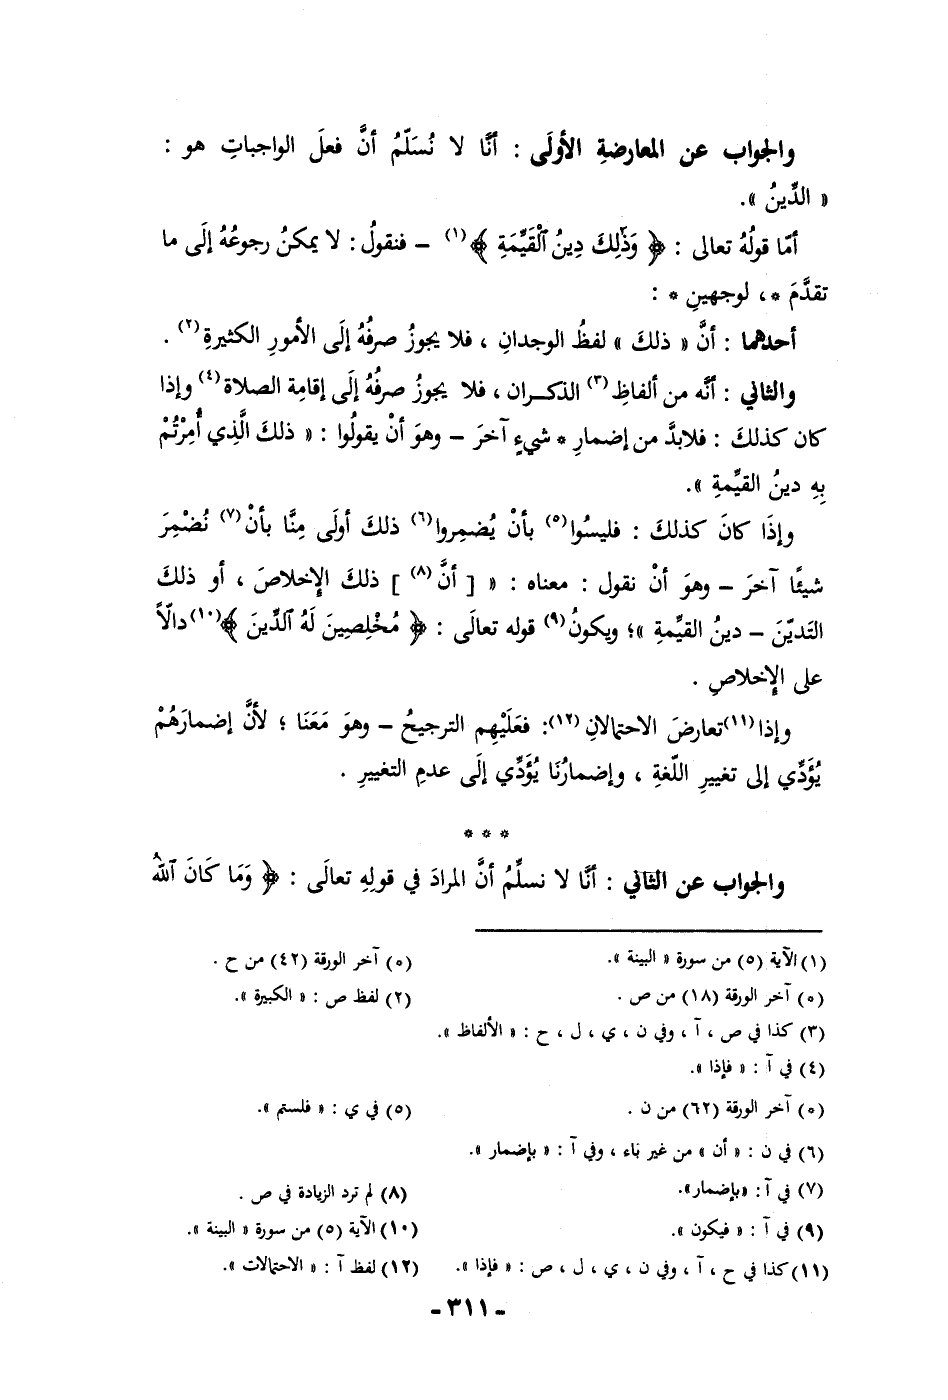 والجواب عن المعارضةِ الأولَى : أنَّا لا نُسَلِّمُ أنَّ فعلَ الواجباتِ هو :
« الدِّينُ ».
أمّا قولُهُ تعالى : ﴿ وَذَٰلِكَ دِينُ ٱلْقَيِّمَةِ ﴾(١) – فنقولُ : لا يمكنُ رجوعُهُ إلَى ما
تقدَّمَ *، لوجهينِ * :
أحدهما : أنَّ « ذلكَ » لفظُ الوجدانِ ، فلا يجوزُ صرفُهُ إلَى الأمورِ الكثيرةِ(٢) .
والثاني : أنَّه من ألفاظِ(٣) الذكـران ، فلا يجوزُ صرفُهُ إلَى إقامِة الصلاة(٤) وإذا
كان كذلكَ : فلابدَّ من إضمارِ * شيءٍ آخرَ – وهوَ أنْ يقولُوا : « ذلكَ الَّذِي أُمِرْتُمْ
بِهِ دينُ القيِّمةِ ».
وإذَا كانَ كذلكَ : فليسُوا(٥) بأنْ يُضمِروا(٦) ذلكَ أولَى مِنَّا بأنْ(٧) نُضْمِرَ
شيئًا آخرَ – وهوَ أنْ نقول : معناه : « [ أنَّ(٨) ] ذلكَ الإِخلاصَ ، أو ذلكَ
التديّنَ – دينُ القيِّمةِ »؛ ويكونُ(٩) قوله تعالَى : ﴿ مُخْلِصِينَ لَهُ ٱلدِّينَ ﴾(١٠) دالّاً
على الإِخلاصِ .
وإذا(١١) تعارضَ الاحتمالانِ(١٢): فعَلَيْهِم الترجيحُ – وهوَ مَعَنَا ؛ لأنَّ إضمارَهُمْ
يُؤَدِّي إلى تغييرِ اللّغةِ ، وإضمارُنَا يُؤَدِّي إلَى عدمِ التغييرِ .
* * *
والجواب عن الثاني : أنَّا لا نسلِّمُ أنَّ المرادَ في قولِهِ تعالَى : ﴿ وَمَا كَانَ ٱللَّهُ
(١) الآية (٥) من سورة « البينة ». (٥) آخر الورقة (٤٢) من ح .
(٥) آخر الورقة (١٨) من ص . (٢) لفظ ص : « الكبيرة ».
(٣) كذا في ص ، آ ، وفي ن ، ي ، ل ، ح : « الألفاظ ».
(٤) في آ : « فإذا ».
(٥) آخر الورقة (٦٢) من ن . (٥) في ي : « فلستم ».
(٦) في ن : « أن » من غير باء ، وفي آ : « بإضمار ».
(٧) في آ : «بإضمار». (٨) لم ترد الزيادة في ص .
(٩) في آ : « فيكون ». (١٠) الآية (٥) من سورة « البينة ».
(١١) كذا في ح ، آ ، وفي ن ، ي ، ل ، ص : « فإذا ». (١٢) لفظ آ : « الاحتمالات ».
- ٣١١ -